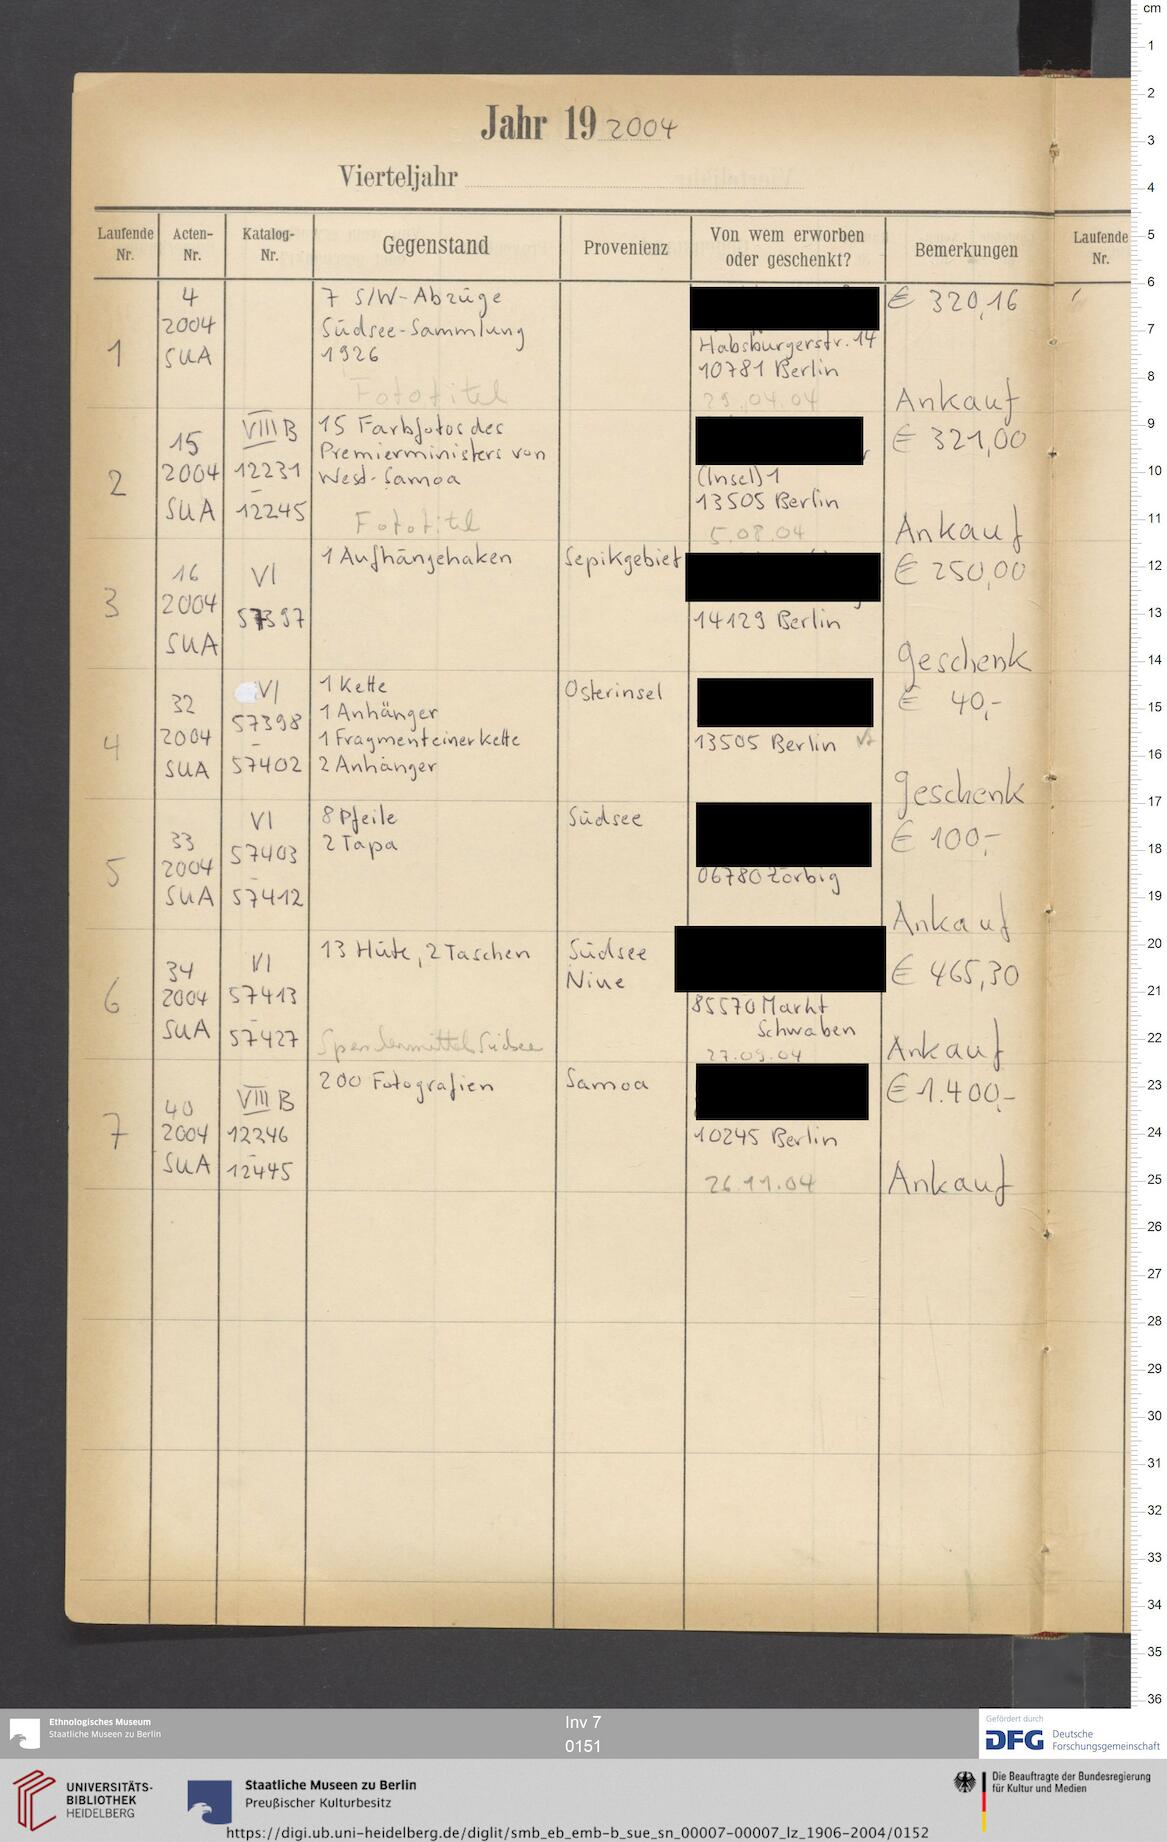 Jahr 19 2004
Vierteljahr
Laufende Nr.
Acten-Nr.
Katalog-Nr.
Gegenstand
Provenienz
Von wem erworben oder geschenkt?
Bemerkungen
Laufende Nr.
1
4
2004
SUA
7 S/W-Abzüge
Südsee-Sammlung
1926
Fototitel
Habsburgerstr. 14
10781 Berlin
29.04.04
€ 320,16
Ankauf
2
15
2004
SUA
VIII B
12231
–
12245
15 Farbfotos des
Premierministers von
West-Samoa
Fototitel
(Insel) 1
13505 Berlin
5.08.04
€ 321,00
Ankauf
3
16
2004
SUA
VI
57397
1 Aufhängehaken
Sepikgebiet
14129 Berlin
€ 250,00
Geschenk
4
32
2004
SUA
VI
57398
–
57402
1 Kette
1 Anhänger
1 Fragment einer Kette
2 Anhänger
Osterinsel
13505 Berlin
€ 40,-
Geschenk
5
33
2004
SUA
VI
57403
–
57412
8 Pfeile
2 Tapa
Südsee
06780 Zörbig
€ 100,-
Ankauf
6
34
2004
SUA
VI
57413
–
57427
13 Hüte, 2 Taschen
Spendenmittel Südsee
Südsee
Niue
85570 Markt
Schwaben
27.09.04
€ 465,30
Ankauf
7
40
2004
SUA
VIII B
12246
–
12445
200 Fotografien
Samoa
10245 Berlin
26.11.04
€ 1.400,-
Ankauf
cm
1
2
3
4
5
6
7
8
9
10
11
12
13
14
15
16
17
18
19
20
21
22
23
24
25
26
27
28
29
30
31
32
33
34
35
36
Ethnologisches Museum
Staatliche Museen zu Berlin
Inv 7
0151
Gefördert durch
DFG Deutsche
Forschungsgemeinschaft
UNIVERSITÄTS-
BIBLIOTHEK
HEIDELBERG
Staatliche Museen zu Berlin
Preußischer Kulturbesitz
Die Beauftragte der Bundesregierung
für Kultur und Medien
https://digi.ub.uni-heidelberg.de/diglit/smb_eb_emb-b_sue_sn_00007-00007_lz_1906-2004/0152